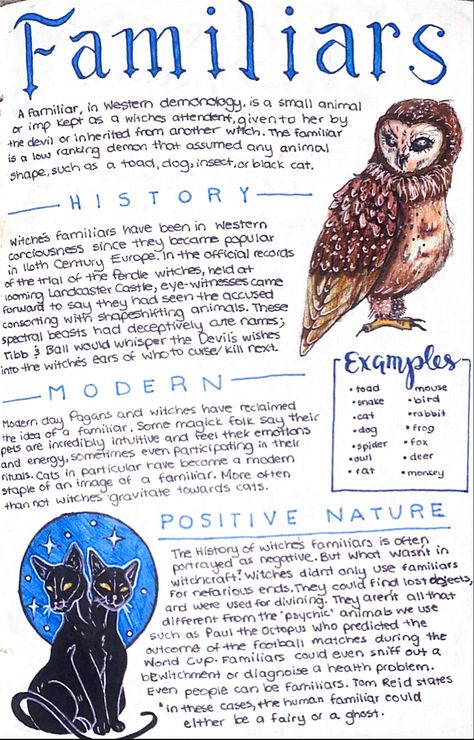 Familiars
A familiar, in Western demonology, is a small animal
or imp kept as a witches attendent, given to her by
the devil or inherited from another witch. The familiar
is a low ranking demon that assumed any animal
shape, such as a toad, dog, insect, or black cat.
HISTORY
Witche's familiars have been in Western
conciousness since they became popular
in 16th Century Europe. In the official records
of the trial of the Pendle witches, held at
looming Landcaster Castle, eye-witnesses came
forward to say they had seen the accused
consorting with shapeshifting animals. These
spectral beasts had deceptively cute names;
Tibb & Ball would whisper the Devil's wishes
into the witche's ears of who to curse/kill next.
MODERN
Modern day Pagans and witches have reclaimed
the idea of a familiar. Some magick folk say their
pets are incredibly intuitive and feel their emotions
and energy, sometimes even participating in their
rituals. Cats in particular have become a modern
staple of an image of a familiar. More often
than not witches gravitate towards cats.
Examples
• toad
• snake
• cat
• dog
• spider
• owl
• rat
mouse
• bird
• rabbit
• frog
• fox
• deer
• monkey
POSITIVE NATURE
The History of witche's familiars is often
portrayed as negative. But what wasn't in
witchcraft? Witches didn't only use familiars
for nefarious ends. They could find lost objects,
and were used for divining. They aren't all that
different from the 'psychic' animals we use
such as Paul the Octopus who predicted the
outcome of the football matches during the
World Cup. Familiars could even sniff out a
bewitchment or diagnoise a health problem.
Even people can be familiars. Tom Reid states
"in these cases, the human familiar could
either be a fairy or a ghost.